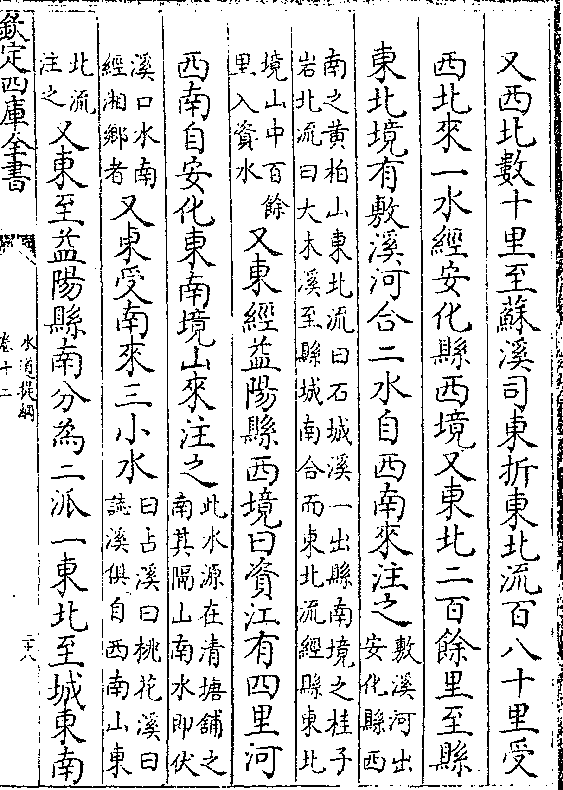 又西北數十里至蘇溪司東折東北流百八十里受
西北來一水經安化縣西境又東北二百餘里至縣
東北境有敷溪河合二水自西南來注之敷溪河出安化縣西
南之黃柏山東北流曰石城溪一出縣南境之桂子
岩北流曰大木溪至縣城南合而東北流經縣東北
境山中百餘里入資水又東經益陽縣西境曰資江有四里河
西南自安化東南境山來注之此水源在清塘鋪之南其隔山南水即伏
溪口水南經湘鄉者又東受南來三小水曰占溪曰桃花溪曰誌溪俱自西南山東
北流注之又東至益陽縣南分為二派一東北至城東南
欽定四庫全書
水道提綱
卷十二
二十八